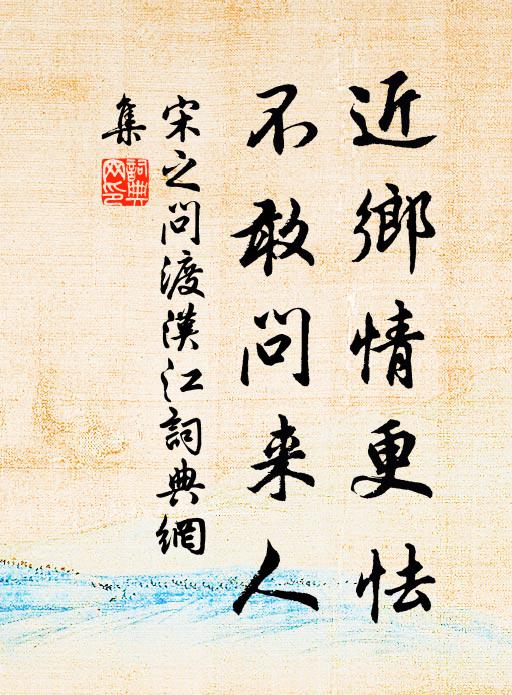 近鄉情更怯
不敢問来人
宋之问渡漢江詞典網
集
詞典
网印